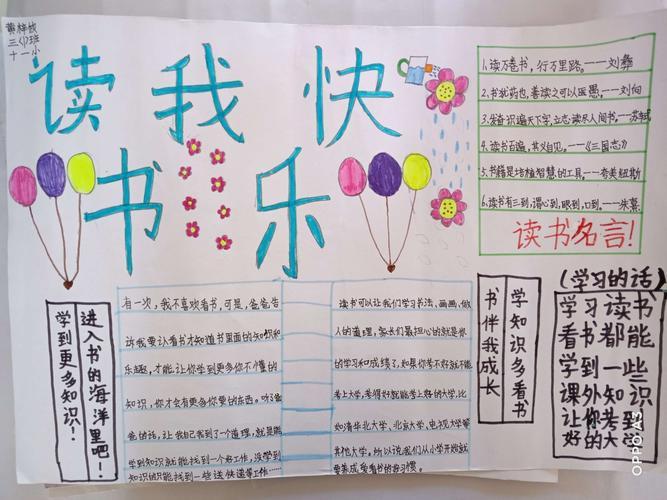 三(1)班
十一小
读我快
书乐
1.读万卷书，行万里路。——刘彝
2.书犹药也，善读之可以医愚。——刘向
3.发奋识遍天下字，立志读尽人间书。——苏轼
4.读书百遍，其义自见。——《三国志》
5.书籍是培植智慧的工具。——夸美纽斯
6.读书有三到，谓心到，眼到，口到。——朱熹
读书名言！
进入书的海洋里吧！
学到更多知识！
有一次，我不喜欢看书，可是，爸爸告
诉我要认看书才知道书里面的知识和
乐趣，才能让你学到更多你不懂的
知识，你才会有更多你要的东西。听
爸的话，让我自己我到了一个道理，就是
学到知识就能找到一个好工作，没学到
知识的只能找到一些送快递等工作……
读书可以让我们学习书法、画画、做
人的道理，家长们最担心的就是你
的学习和成绩了，如果你考不好就不能
考上大学，考得好就能考上好的大学，比
如清华北大学，北京大学，电视大学等
其他大学。所以说我们从小学开始就
要养成爱看书的好习惯。
学知识多看书
书伴我成长
(学习的话)
学习读书
看书都能
学到一些
课外知识
让你考到
好的大学
OPPO A3